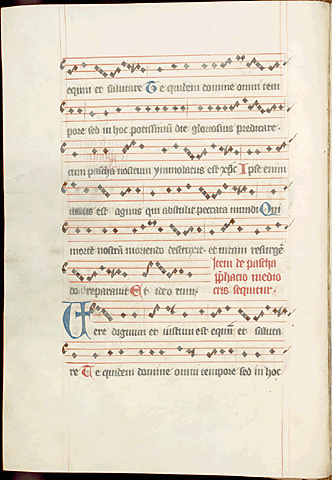 equm et salutare Te quidem domine omni tem
pore sed in hoc potissimū die gloriosius predicare.
cum pascha nostrum ymmolatus est xp̄c Ipse enim
uerus est agnus qui abstulit peccata mundi Qui
mortē nostrā moriendo destruxit et uitam resurgē
do reparauit Et ideo cum
Item de pascha
p̄fhacio medio
cris sequitur.
Vere dignum et iustum est equm̄ et saluta
re Te quidem domine omni tempore sed in hoc